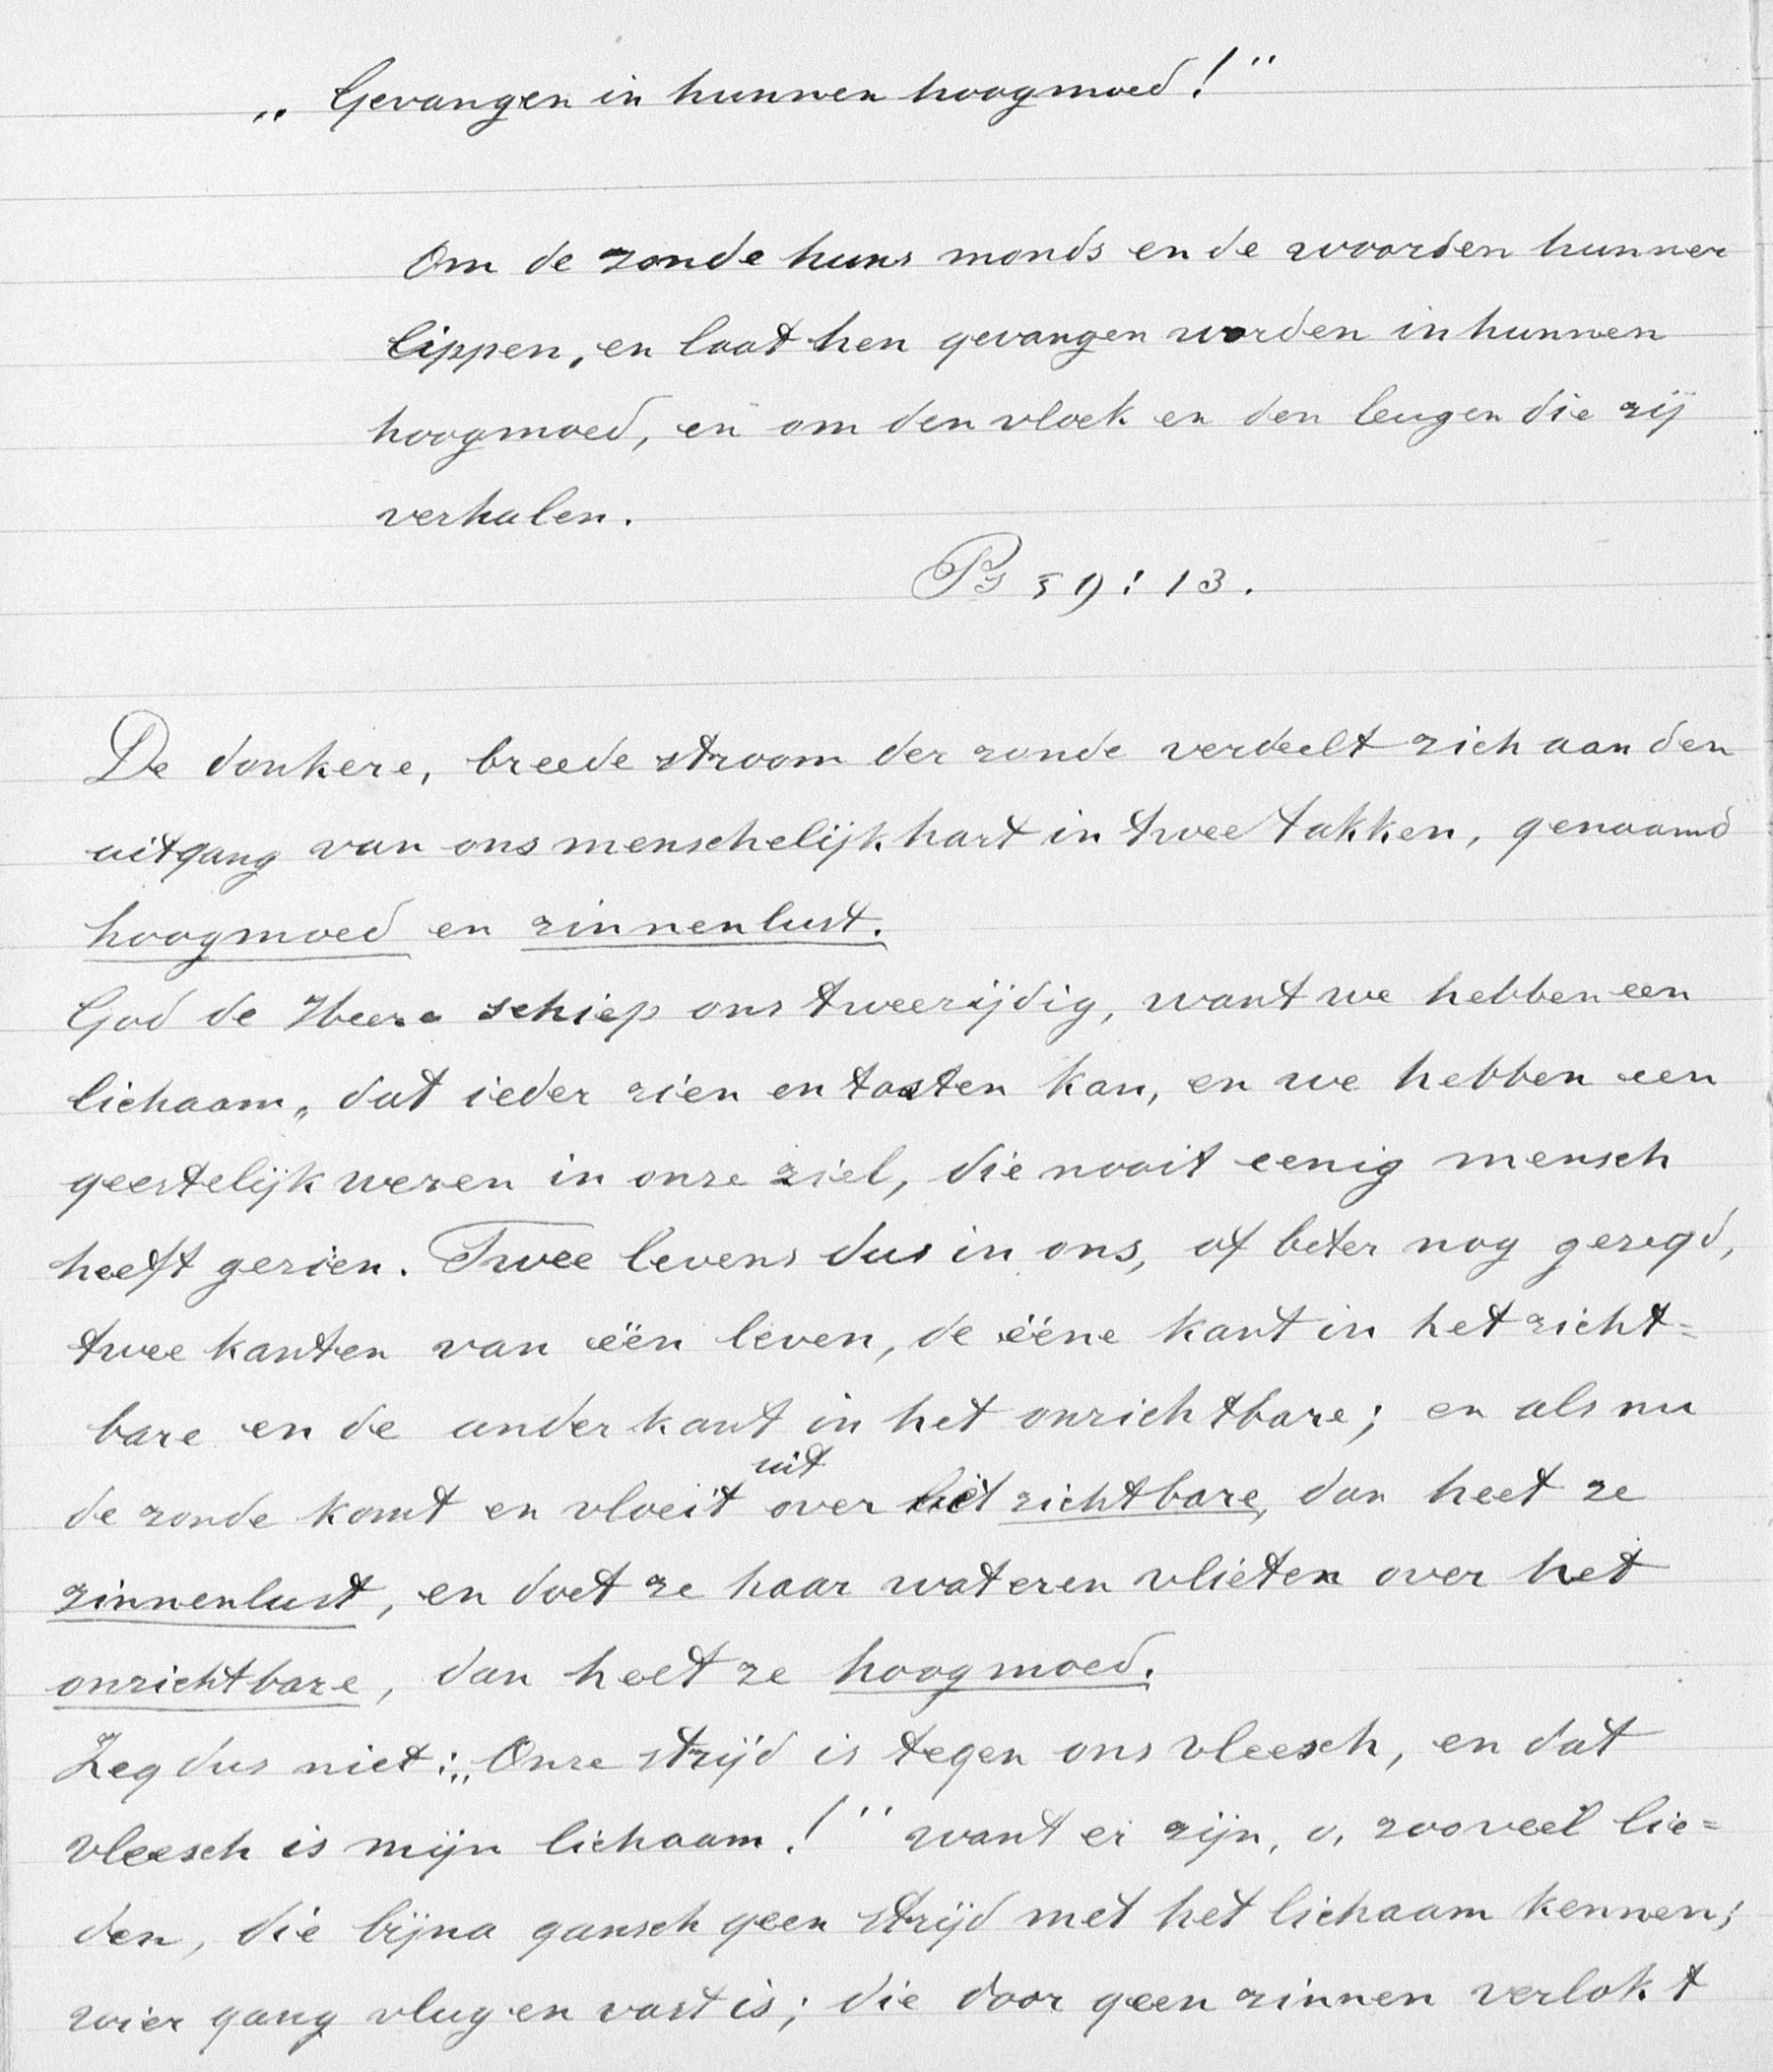 „Gevangen in hunnen hoogmoed!“
Om de zonde huns monds en de woorden hunner
lippen, en laat hen gevangen worden in hunnen
hoogmoed, en om den vloek en den leugen die zij
verhalen.
Ps 59:13.
De donkere, breede stroom der zonde verdeelt zich aan den
uitgang van ons menschelijk hart in twee takken, genaamd
hoogmoed en zinnenlust.
God de Heere schiep ons tweezijdig, want we hebben een
lichaam, dat ieder zien en tasten kan, en we hebben een
geestelijk wezen in onze ziel, die nooit eenig mensch
heeft gezien. Twee levens dus in ons, of beter nog gezegd,
twee kanten van één leven, de ééne kant in het zicht=
bare en de ander kant in het onzichtbare; en als nu
de zonde komt en vloeit uit over het zichtbare, dan heet ze
zinnenlust, en doet ze haar wateren vlieten over het
onzichtbare, dan heet ze hoogmoed.
Zeg dus niet: „Onze strijd is tegen ons vleesch, en dat
vleesch is mijn lichaam!“ want er zijn, o, zooveel lie=
den, die bijna gansch geen strijd met het lichaam kennen;
wier gang vlug en vast is; die door geen zinnen verlokt